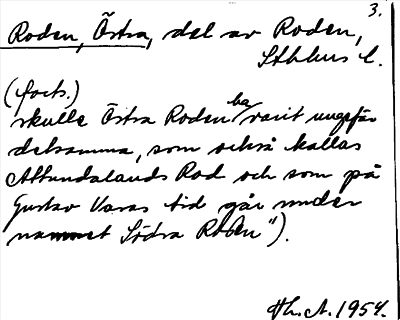 3.
Roden, Östra, del av Roden,
Sthlms l.
(forts.)
skulle Östra Roden ha varit ungefär
detsamma, som också kallas
Attundalands Rod och som på
Gustav Vasas tid går under
namnet Södra Roden").
1954.